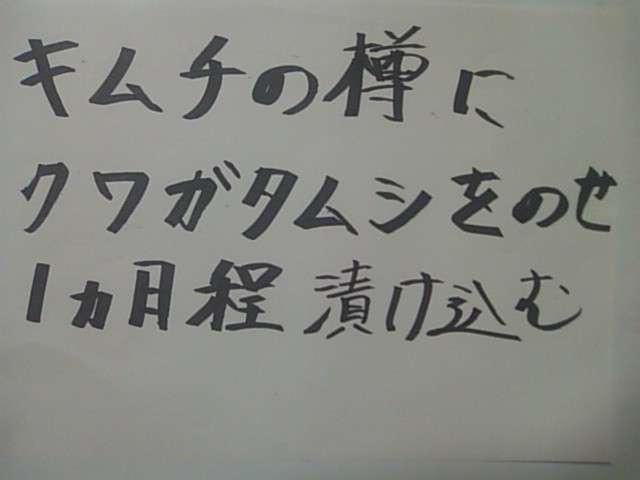 キムチの樽に
クワガタムシをのせ
1ヵ月程漬け込む